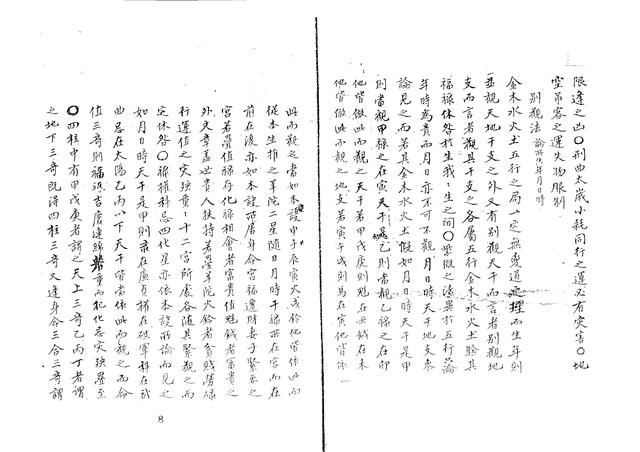 限逢之凶〇刑曲太歲小耗同行之運必有灾害〇地
空吊客之運失物服制
別觀法 論所以年月日時
金木水火土五行之局一定無變道理而生年則
并觀天地干支之外又有別觀天干而言者別觀地
支而言者觀其干支之各屬五行金木水火土驗其
福祿休咎於生我我生之間〇紫微之法異於五行論
年時為貴而月日亦不可不觀月日時天干地支參
論見之而若其金木水火土假如月日時天干是甲
則當觀甲祿之在寅天干是乙則當觀乙祿之在卯
他皆做此而觀之天干若甲戊庚則魁在丑鉞在未
他皆做此而觀之地支若寅午戌則馬在寅他皆依
此而觀之當如本設申子辰寅火戌鈴他皆依此而
從本生推之羊陀二星隨日月時干祿所在宮而在
前在後亦如本設所居身命宮福遷財妻子緊要之
宮若疊值祿存化祿相會者富貴值魁鉞者富貴之
外文章蓋世貴人扶持若疊羊陀火鈴者貧賤勞碌
行運值之灾殃重重十二宮所處各隨其所見而
定休咎〇祿權科忌四化星亦依本設所論而見之
如月日時天干是甲則祿在廉貞權在破軍科在武
曲忌在太陽乙丙以下天干皆當依此而觀之而命
值三奇則福祿吉慶連綿若重而犯化忌灾殃疊至
〇四柱中有甲戊庚者謂之天上三奇乙丙丁者謂
之地下三奇既得四柱三奇又逢身命三合三奇謂
8